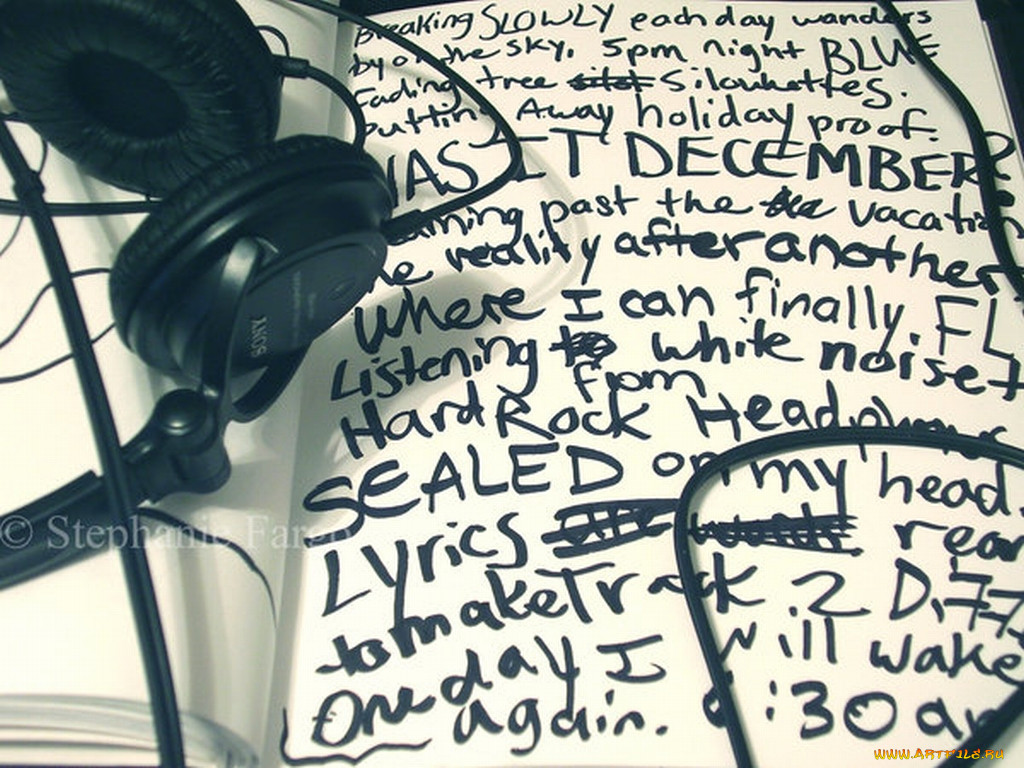 Breaking SLOWLY each day wanders
by on the sky, 5pm night BLUE
Fading tree silowhettes.
Putting Away holiday proof.
WAS IT DECEMBER?
past the vacation
reality after another
Where I can finally. FL
Listening to white noise
from
Hard Rock Headphones
SEALED on my head.
Lyrics are rear
to make Track .2 D.77
One day I will wake
again. :30 am
SONY
© Stephanie Fargo
www.ArtFile.ru